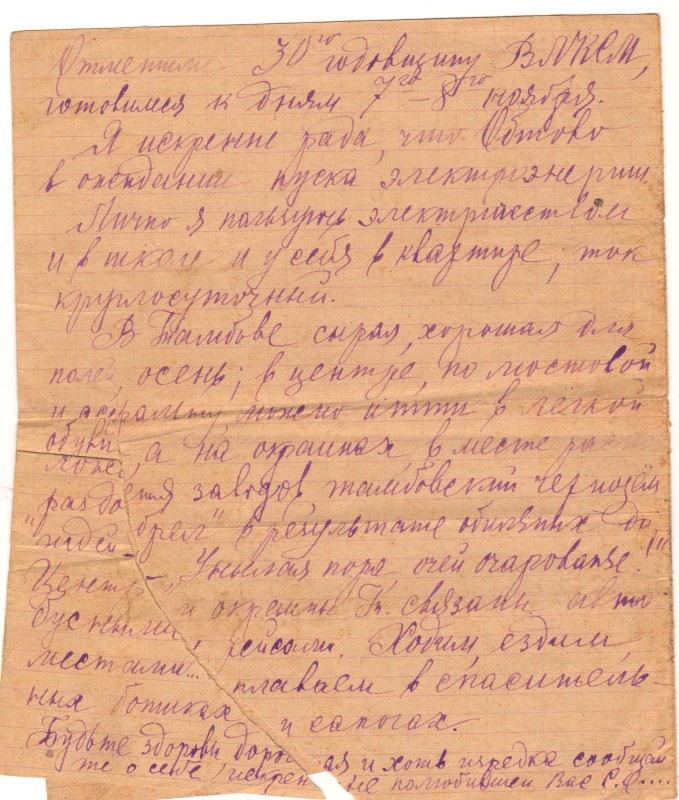 Отметили 30го годовщину ВЛКСМ,
готовимся к дням 7го–8го ноября.
Я искренне рада, что Обтово
в ожидании пуска электроэнергии.
Лично я пользуюсь электричеством
и в школе и у себя в квартире; ток
круглосуточный.
В Тамбове сырая, хорошая для
полей, осень; в центре, по мостовой
и асфальту можно итти в лёгкой
обуви, а на окраинах, в месте
заводов тамбовский чернозём
" в результате обильных
"Унылая пора очей очарованье!"
Центр и окраины связаны авто
бусными рейсами. Ходим, ездим,
местами... плаваем в спаситель-
ных ботиках и сапогах.
Будьте здоровы дорогая и хоть изредка сообщай
те о себе, искренне полюбившей Вас С.О....